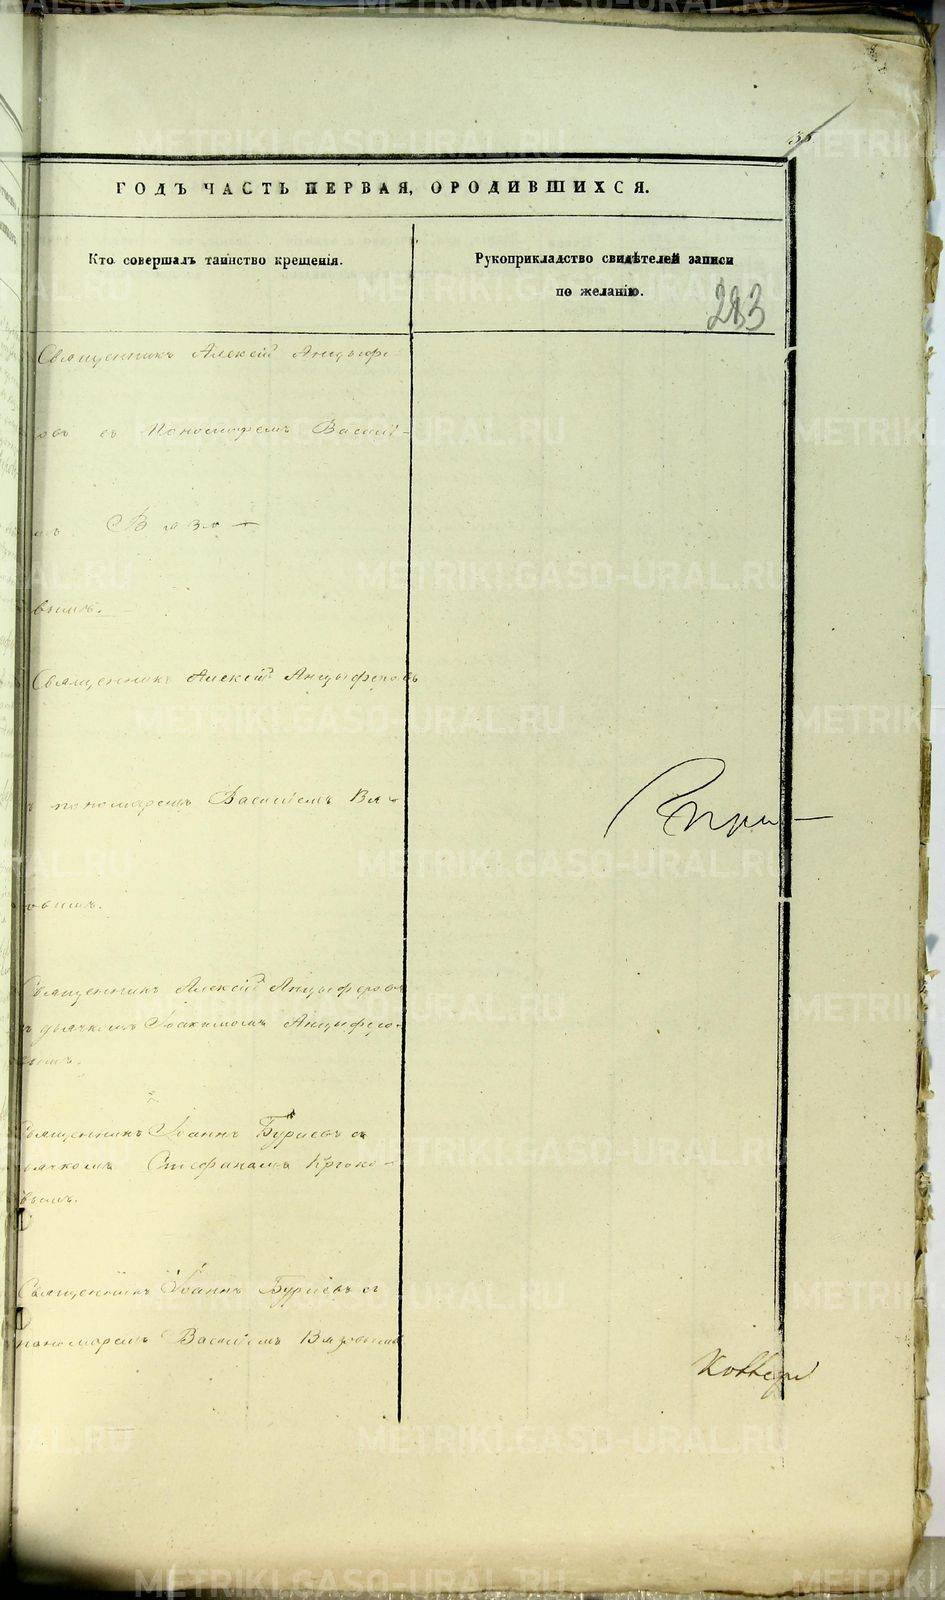 ГОДЪ ЧАСТЬ ПЕРВАЯ, ОРОДИВШИХСЯ.
Кто совершалъ таинство крещенія.
Рукоприкладство свидѣтелей записи
по желанію.
283
Священникъ Алексій Анцыфе
овъ съ Пономаремъ Василі-
мъ Вязо-
вымъ.
Священникъ Алексій Анцыферовъ
пономаремъ Василіемъ Вя-
зовымъ.
Священникъ Алексій Анцыферовъ
дьячкомъ Іоакимомъ Анцыферо-
вымъ.
Священникъ Іоаннъ Бурневъ съ
дьячкомъ Стефаномъ Крюко-
вымъ.
Священникъ Іоаннъ Бурневъ съ
пономаремъ Василіемъ Вязовымъ
METRIKI.GASO-URAL.RU